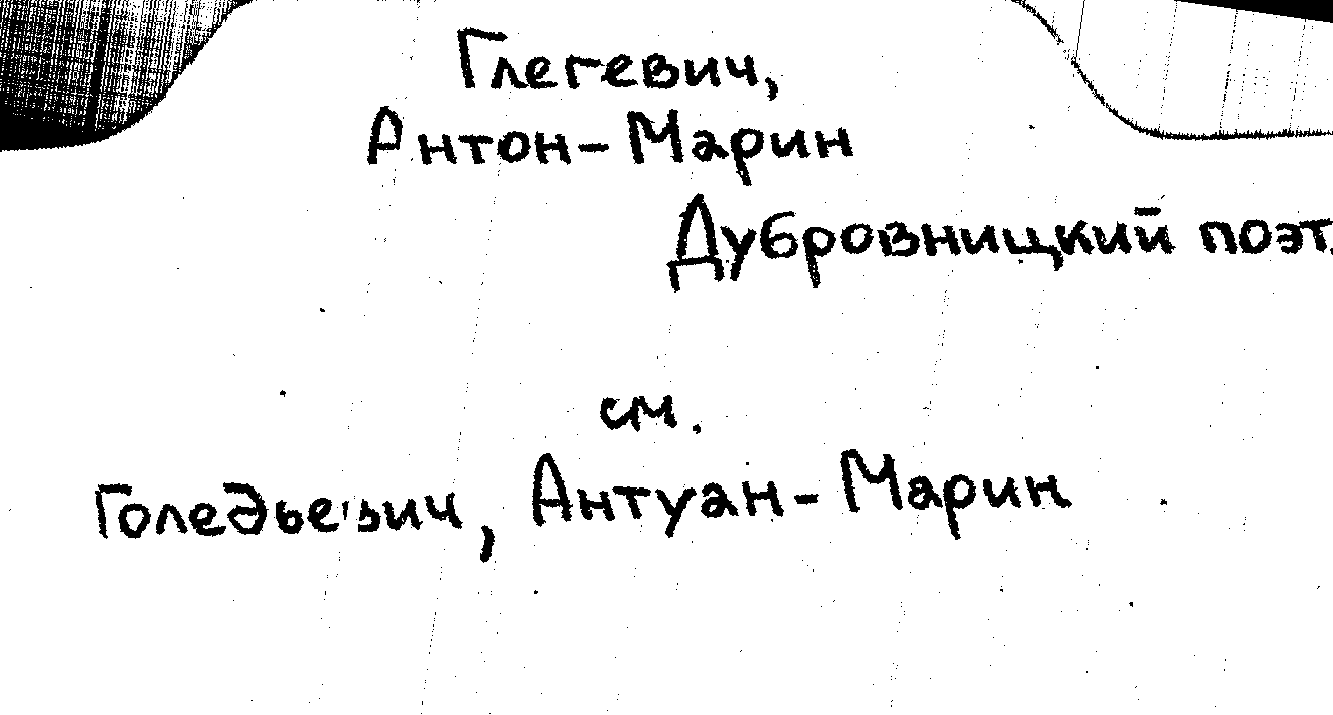 Глегевич,
Антон-Марин
Дубровницкий поэт.
см.
Голедьевич, Антуан-Марин